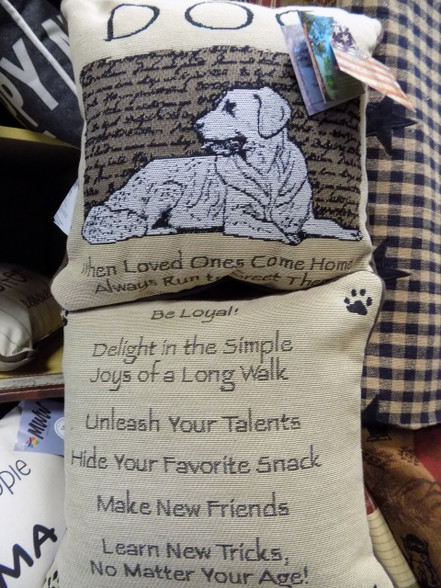 DO
When Loved Ones Come Home
Always Run to Greet Them
Be Loyal!
Delight in the Simple
Joys of a Long Walk
Unleash Your Talents
Hide Your Favorite Snack
Make New Friends
Learn New Tricks,
No Matter Your Age!
PY
ople
MA